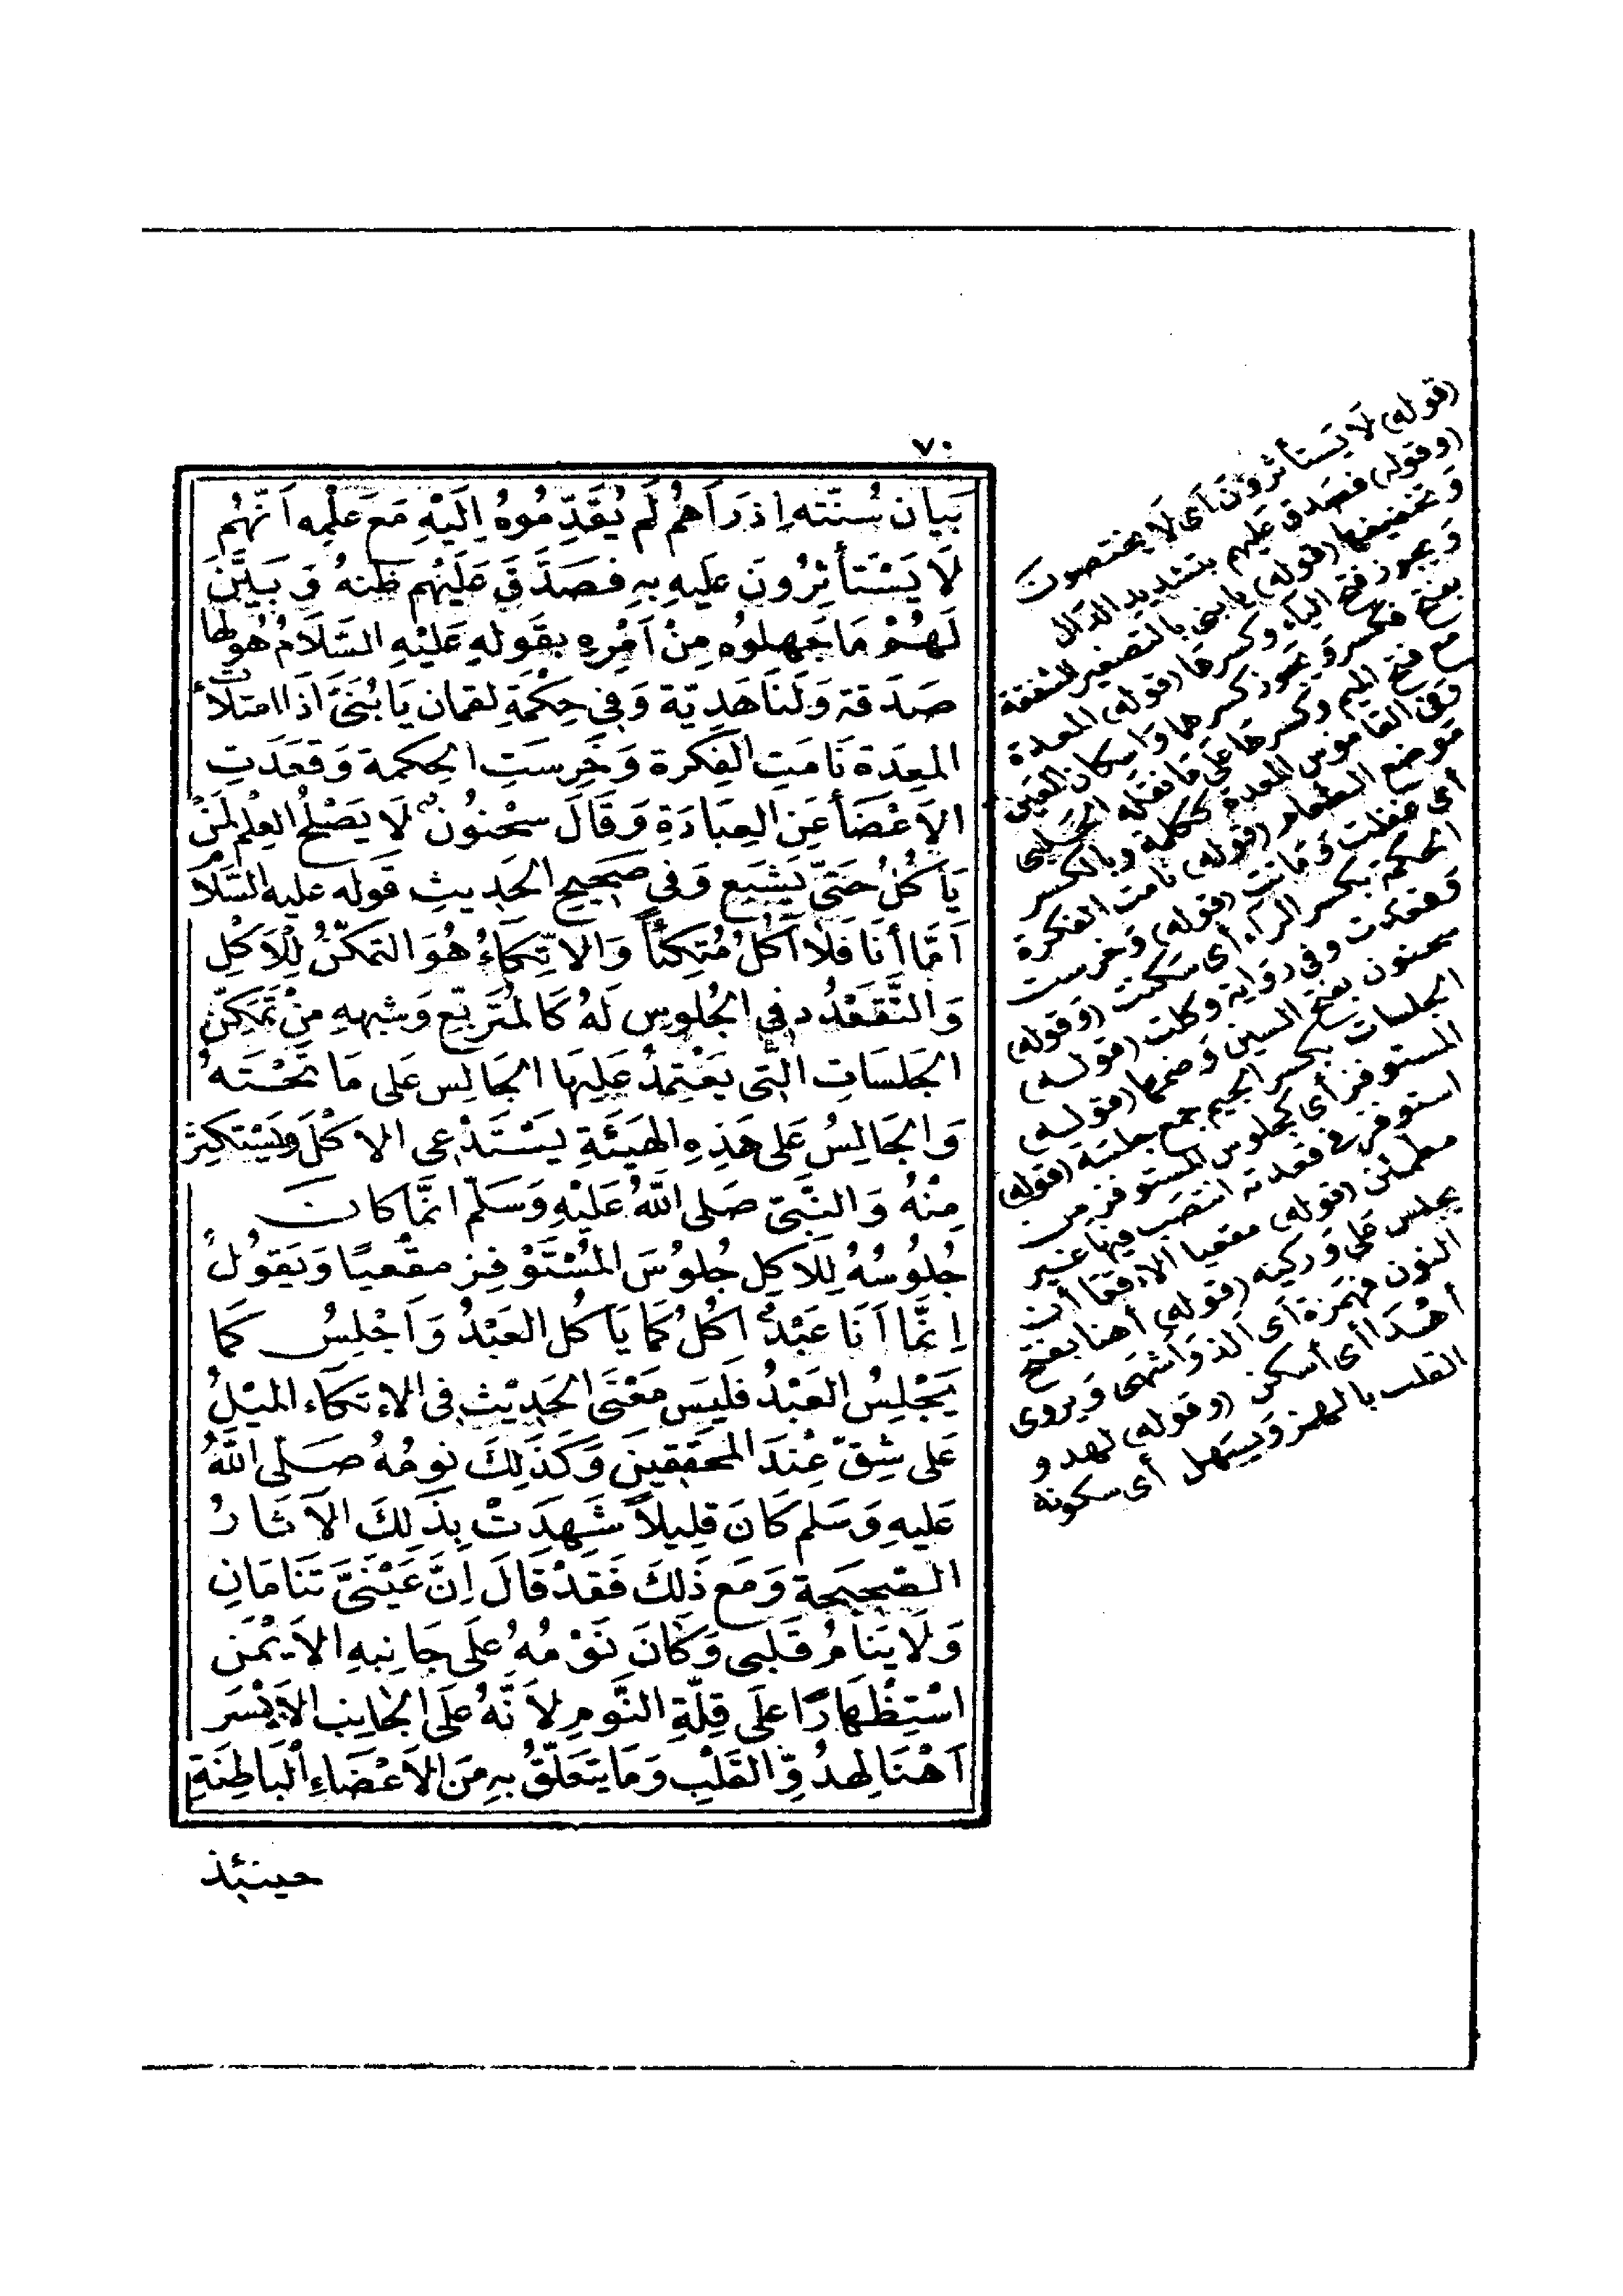 ٧٠
بَيَان سُنَّتَه اِذ رَآهُم لَم يُقَدِّمُوهُ اِلَيْهِ مَعَ عِلْمِه اَنَّهُم
لَا يَسْتَأثِرُونَ عَلَيهِ بِهِ فَصَدَّقَ عَلَيْهُم ظَنهُ وَ بَيَّنَ
لَهُمْ مَا جَهِلوُه مِنْ اَمْرِهِ بِقَولهِ عَلَيْهِ السَّلَامُ هُو لَهَا
صَدَقة وَلَنَا هَدِيّة وَفِي حِكْمَةِ لقمان يَا بُنَيَّ اذَا امتلأت
المعِدَة نَامَتِ الفِكرة وَخَرِسَتِ الحِكمة وَقَعَدَتِ
الاَعْضَأ عَنِ العِبَادَةِ وَقَالَ سحْنُونٌ لَا يَصْلحُ العِلْم لمَنْ
يَأكُلُ حَتىَّ يَشْبَع وَفِي صَحِيحِ الحَدِيثِ قَوله عليه السَّلَام
اَمَّا أنَا فَلَا آكُلُ مُتكِئاً وَالاتِّكَاءُ هُوَ التمَكّنُ لِلْاَكْلِ
وَالتَّقَعْدُد فِي الجُلوسِ لَهُ كَالمُتَرَبِّع وَشِبْهِهِ مِنْ تَمَكّنِ
الجَلسَاتِ الَّتِى يَعْتِمدُ عَلَيْهَا الجَالِس عَلى مَا تَحْتَهُ
وَالجَالِسُ عَلى هَذِهِ الهَيْئَةِ يَسْتَدْعِى الاكْلَ وَيَسْتكِثرُ
مِنْهُ وَالنَّبِىّ صَلى اللهُ عَلَيْهِ وَسَلّم انمَّا كَانَ
جُلوُسُهُ لِلاكلِ جُلوُسَ المُسْتَوْفِز مقْعيًا وَيَقوُلُ
اِنمَّا اَنَا عَبْدٌ اكُلُ كَمَا يَاكُل العَبْدُ وَاَجْلِسُ كَمَا
يَجْلِسُ العَبْدُ فَلَيَس مَعْنَى الحَدِيْثِ فِى الاِتكاء الميْلُ
عَلى شِقّ عِنْدَ المحَقِقِينَ وَكَذَلِكَ نومُهُ صَلّى اللهُ
عَليهِ وَسَلم كَانَ قلِيلاً شَهِدَتْ بِذَلِكَ الآثارُ
الصَّحِيحَة وَمَع ذَلِكَ فَقَدْ قَالَ اِنَّ عَيْنَيَّ تَنَامَانِ
وَلَا يَنَامُ قَلبى وَكانَ نَوْمُهُ عَلَى جَانِبهِ الاَيمَن
اسْتِظْهَارًا عَلَى قِلّةِ النَّومِ لاَنَّهُ عَلَى الجَانِب الاَيْسَر
اَهْنَا لهدُوِّ القَلْبِ وَمَا يتَعَلّقُ بِهِ مَنَ الاَعْضَاءِ الْبَاطِنَةِ
حينئذ
(قوله) لَا يَستأثِرُونَ اَى لَا يختصون
(وقوله) فصَدق عَليهم بتشديد الدال
وَتخفيفها (قوله) يا بنى بالتصغير للشفقة
وَيجوز فتح اليآء وكسرها (قوله) المعدة
بفتح فكسر وَيجوز كسرها وَاسكان العَين
مع فتح الميم وكسرها عَلى مَا نقله الحَلبى
وَفى القاموس المعدة ككلمة وبالكسر
مَوضع الطعام (قوله) نامت الفكرة
أى غفلت وَمَاتت (قوله) وَخرست
الحكمة بكسر الرآء أى سَكتت (وَقوله)
وَقعدت وفى رواية وكلت (قوله)
سحنون بفتح السين وَضمها (قوله)
الجلسات بكسر الجيم جمع جلسَة (قوله)
المستوفز أى كجلوس المستوفز من
استوفز فى قعدته انتصَب فيها غير
مطمئن (قوله) مقعيا الاقعا أن
يجلس عَلى وَركيه (قوله) أهنا بفتح
النون فهَمزة أى الذ وَأشهى وَيروى
أهْدَا أى أسكن (وقوله) لهدو
القلب بالهمز وَيسَهل أى سكونه